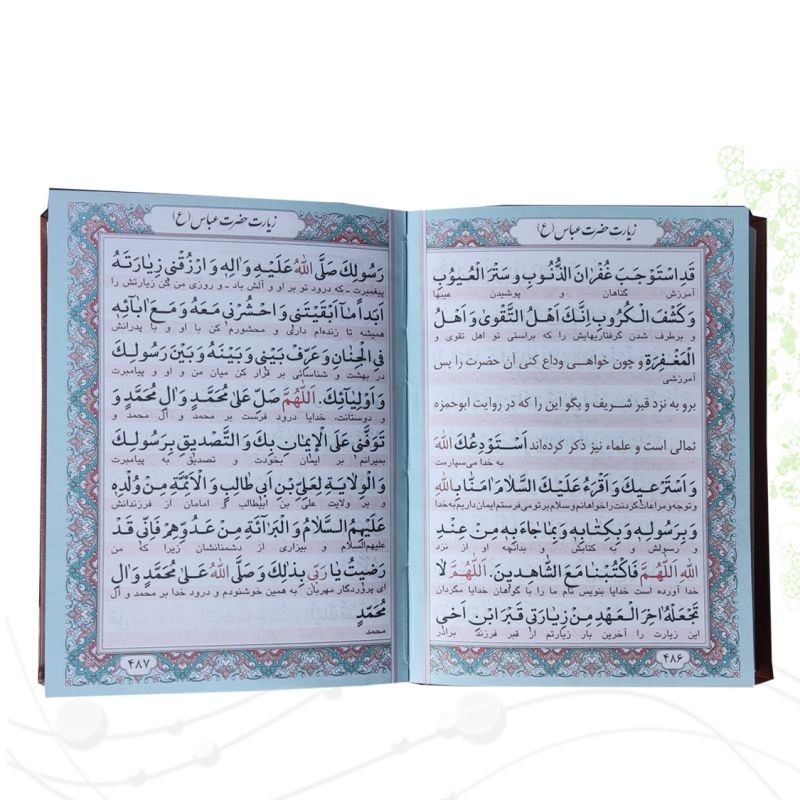 زیارت حضرت عباس (ع)
قَدِ اسْتَوْجَبَ غُفْرانَ الذُّنُوبِ وَ سَتْرَ الْعُیُوبِ
آمرزش گناهان و پوشیدن عیبها
وَ كَشْفَ الْكُرُوبِ اِنَّكَ اَهْلُ التَّقْوىٰ وَ اَهْلُ
و برطرف شدن گرفتاریهایش را که براستی تو اهل تقوی و
الْمَغْفِرَةِ و چون خواهی وداع کنی آن حضرت را پس
آمرزشی
برو به نزد قبر شریف و بگو این را که در روایت ابوحمزه
ثمالی است و علماء نیز ذکر کرده‌اند اَسْتَوْدِعُكَ اللهَ
به خدا می‌سپارمت
وَ اَسْتَرْعیكَ وَ اَقْرَءُ عَلَیْكَ السَّلامَ اٰمَنّا بِاللهِ
و توجه و مراعات کردنت را خواهانم و سلام بر تو می‌فرستم ایمان داریم به خدا
وَ بِرَسُولِهِ وَ بِكِتابِهِ وَ بِما جاءَ بِهِ مِنْ عِنْدِ
و رسولش و به کتابش و بدانچه او از نزد
اللهِ اَللّٰهُمَّ فَاكْتُبْنا مَعَ الشّاهِدینَ. اَللّٰهُمَّ لا
خدا آورده است خدایا بنویس نام ما را با گواهان خدایا مگردان
تَجْعَلْهُ اٰخِرَ الْعَهْدِ مِنْ زِیارَتی قَبْرَ ابْنِ اَخی
این زیارت را آخرین بار زیارتم از قبر فرزند برادر
۴۸۶
زیارت حضرت عباس (ع)
رَسُولِكَ صَلَّى اللهُ عَلَیْهِ وَ اٰلِهِ وَ ارْزُقْنی زِیارَتَهُ
پیغمبرت ـ که درود تو بر او و آلش باد ـ و روزی من کن زیارتش را
اَبَداً ما اَبْقَیْتَنی وَ احْشُرْنی مَعَهُ وَ مَعَ اٰبآئِهِ
همیشه تا زنده‌ام داری و محشورم کن با او و با پدرانش
فِی الْجِنانِ وَ عَرِّفْ بَیْنی وَ بَیْنَهُ وَ بَیْنَ رَسُولِكَ
در بهشت و شناسائی بر قرار کن میان من و او و پیامبرت
وَ اَوْلِیآئِكَ. اَللّٰهُمَّ صَلِّ عَلىٰ مُحَمَّدٍ وَ اٰلِ مُحَمَّدٍ وَ
و دوستانت، خدایا درود فرست بر محمد و آل محمد و
تَوَفَّنی عَلَى الْإیمانِ بِكَ وَ التَّصْدیقِ بِرَسُولِكَ
بمیرانم بر ایمان بخودت و تصدیق به پیامبرت
وَ الْوِلایَةِ لِعَلِیِّ بْنِ اَبی طالِبٍ وَ الْاَئِمَّةِ مِنْ وُلْدِهِ
و بر ولایت علی بن ابیطالب و امامان از فرزندانش
عَلَیْهِمُ السَّلامُ وَ الْبَرآئَةِ مِنْ عَدُوِّهِمْ فَاِنّی قَدْ
علیهم‌السلام و بیزاری از دشمنانشان زیرا که من
رَضیتُ یا رَبّی بِذٰلِكَ وَ صَلَّى اللهُ عَلىٰ مُحَمَّدٍ وَ اٰلِ
ای پروردگار مهربان به همین خوشنودم و درود خدا بر محمد و آل
مُحَمَّدٍ
محمد
۴۸۷